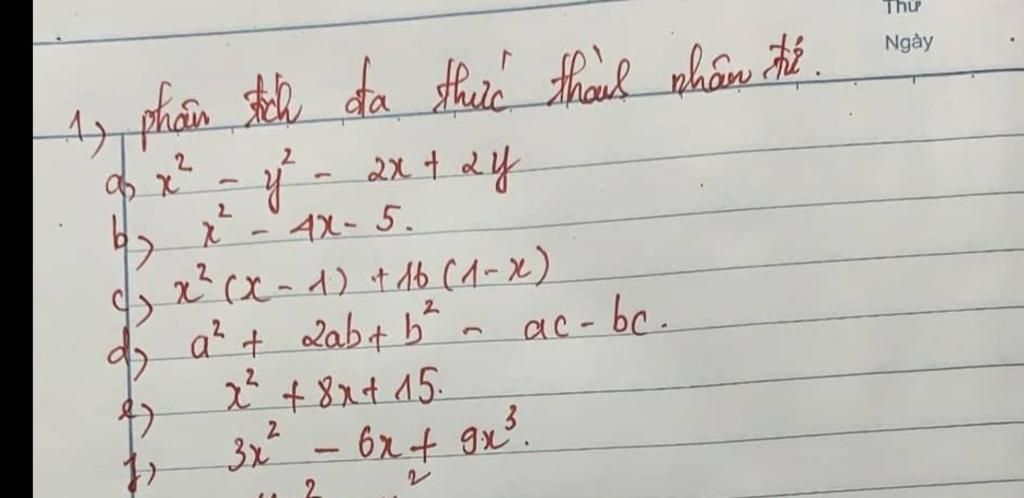 Thứ
Ngày
1) phân tích đa thức thành nhân tử.
a) x² - y² - 2x + 2y
b) x² - 4x - 5.
c) x² (x - 1) + 16 (1 - x)
d) a² + 2ab + b² - ac - bc.
e) x² + 8x + 15.
f) 3x² - 6x + 9x³.